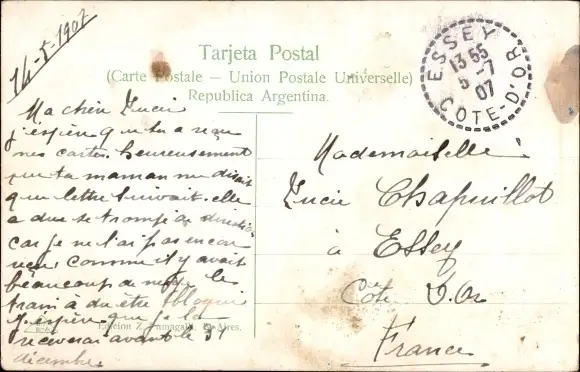 14-5-1907
Tarjeta Postal
(Carte Postale – Union Postale Universelle)
Republica Argentina.
ESSEY
13 55
5 -7
07
COTE-D'OR
Ma chère Lucie
j'espère que tu a reçu
mes cartes. heureusement
que ta maman me disait
que lettre suivait. elle
a due se trompé de
car je ne l'ai pas encore
reçu, comme il y avait
beaucoup de neige le
train à du être bloqué
j'espère que je la
recevrai avant le 31
décembre.
Mademoiselle
Lucie Chapuillot
à Essey
Côte d'Or
France
Edicion Z. Fumagalli, B. Aires.